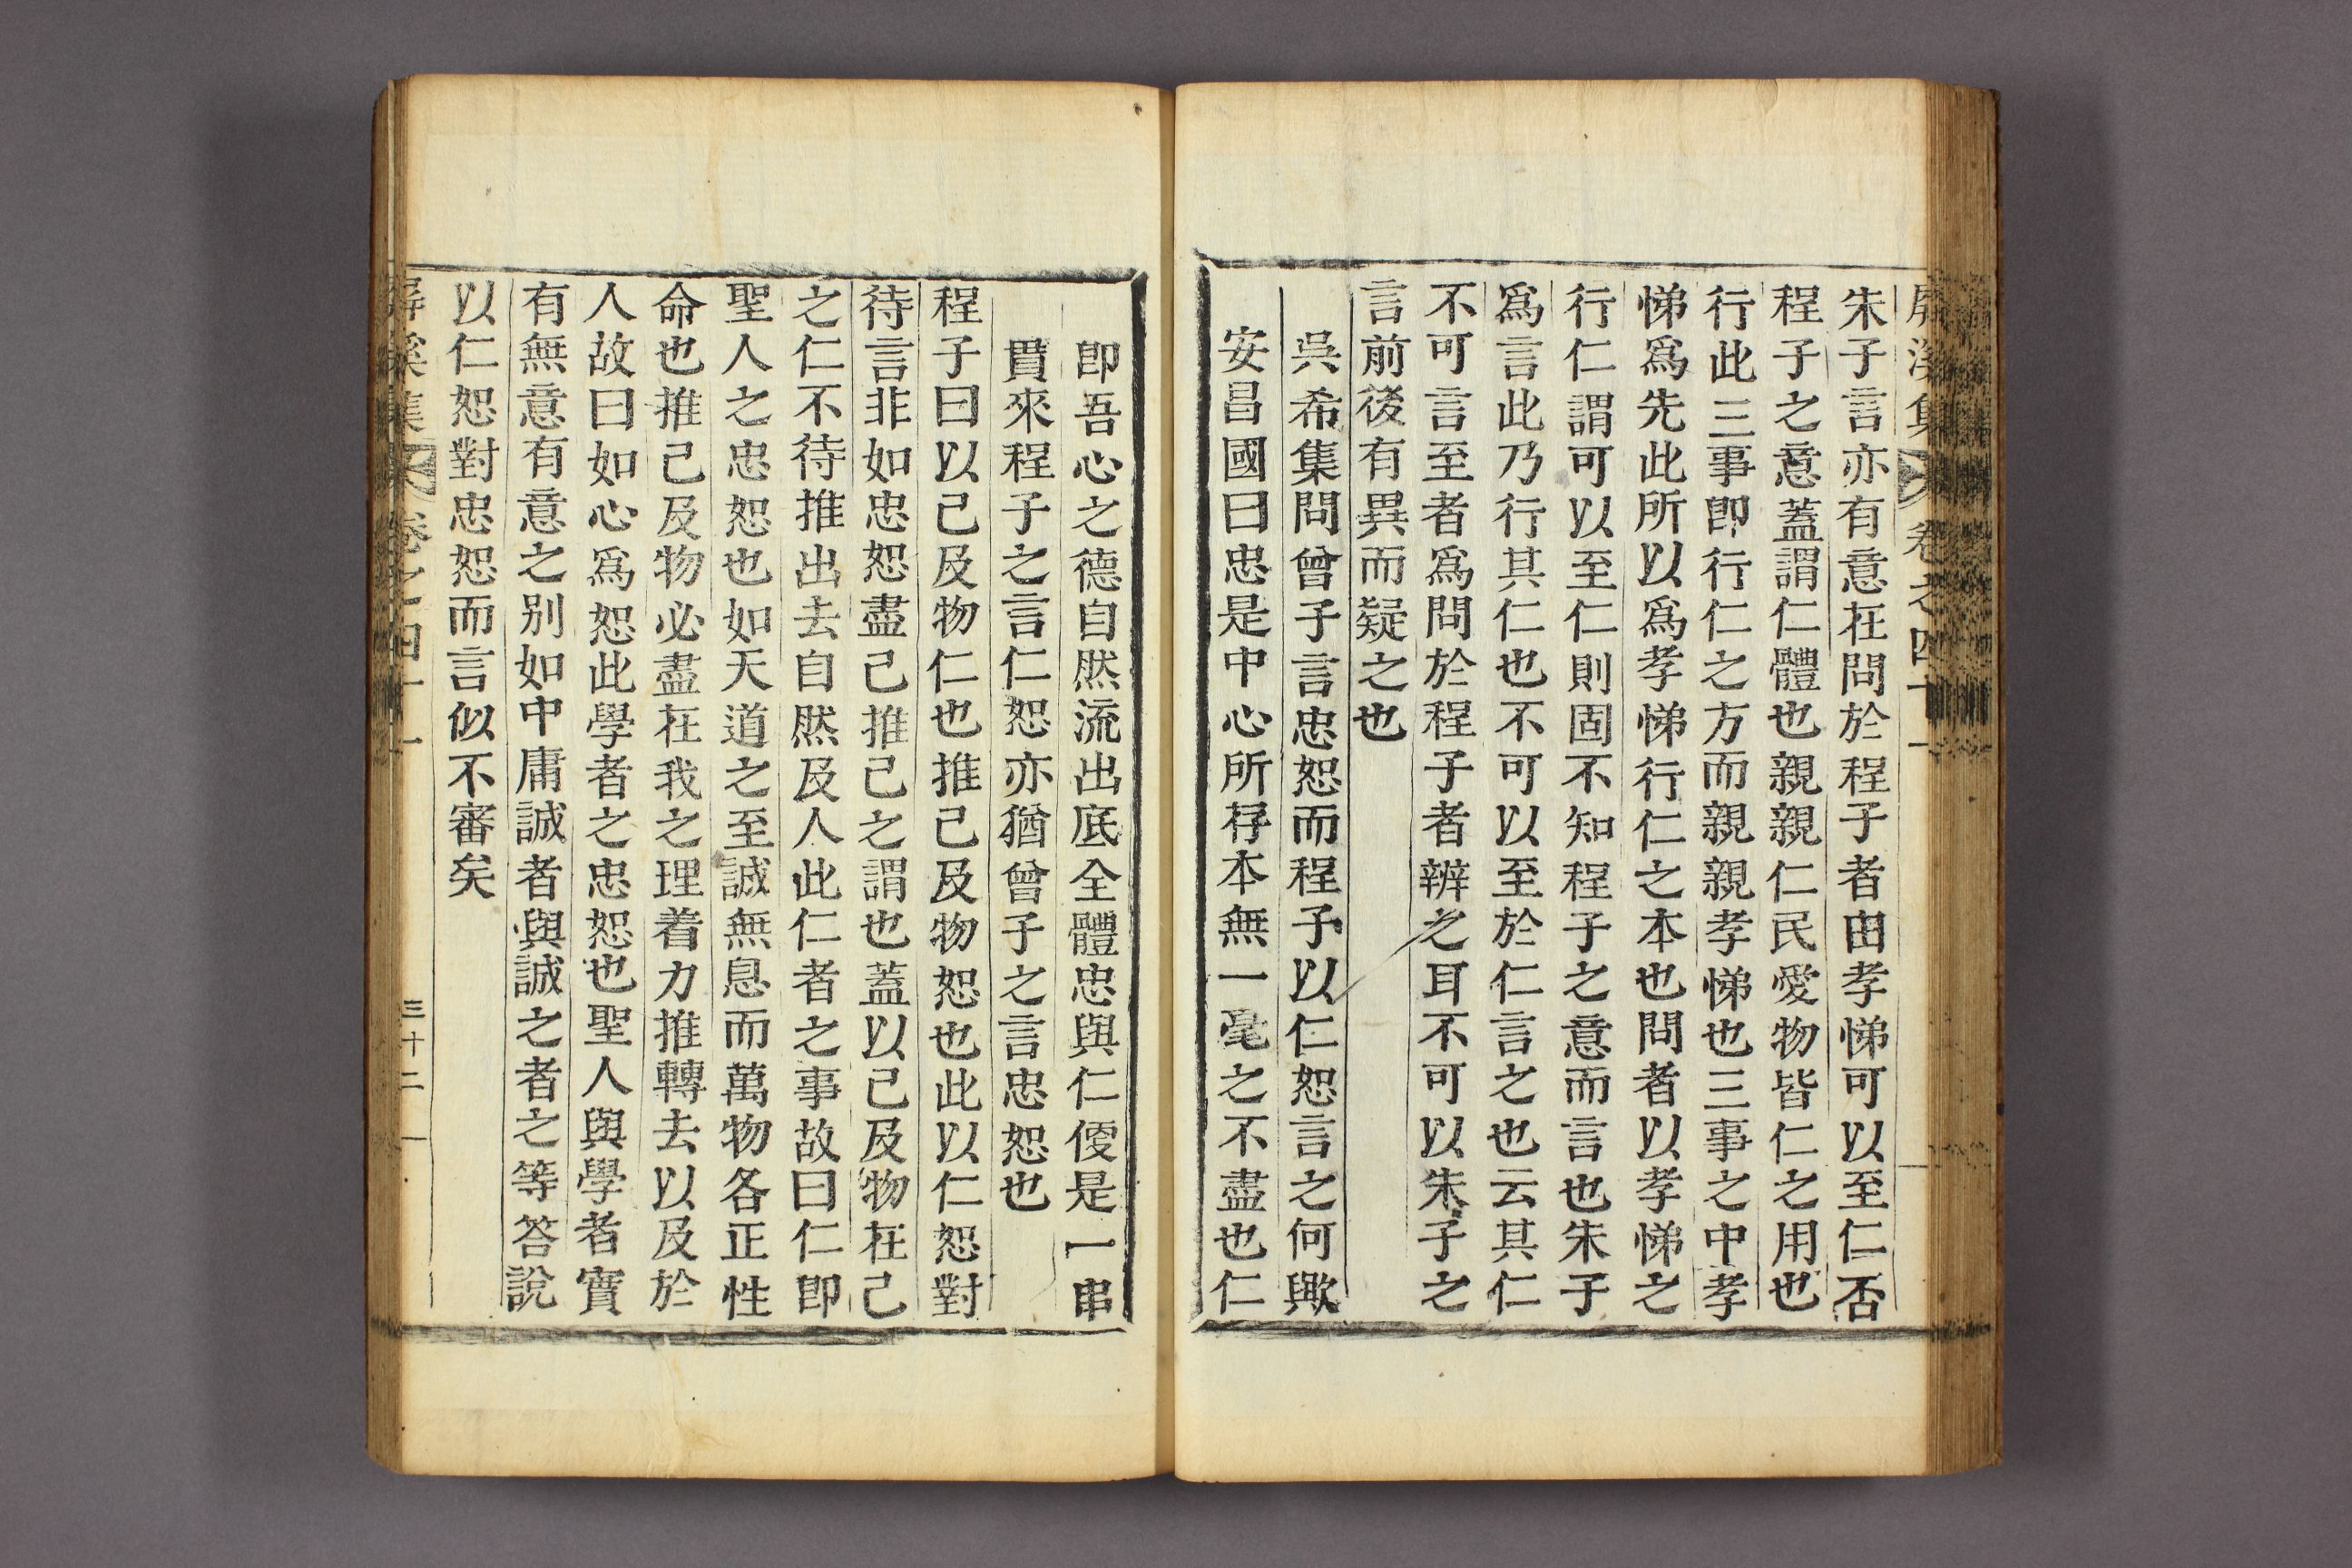 屛溪集 卷之四十一
朱子言亦有意在問於程子者由孝悌可以至仁否
程子之意蓋謂仁體也親親仁民愛物皆仁之用也
行此三事卽行仁之方而親親孝悌也三事之中孝
悌爲先此所以爲孝悌行仁之本也問者以孝悌之
行仁謂可以至仁則固不知程子之意而言也朱子
爲言此乃行其仁也不可以至於仁言之也云其仁
不可言至者爲問於程子者辨之耳不可以朱子之
言前後有異而疑之也
吳希集問曾子言忠恕而程子以仁恕言之何歟
安昌國曰忠是中心所存本無一毫之不盡也仁
卽吾心之德自然流出底全體忠與仁便是一串
貫來程子之言仁恕亦猶曾子之言忠恕也
程子曰以己及物仁也推己及物恕也此以仁恕對
待言非如忠恕盡己推己之謂也蓋以己及物在己
之仁不待推出去自然及人此仁者之事故曰仁卽
聖人之忠恕也如天道之至誠無息而萬物各正性
命也推己及物必盡在我之理着力推轉去以及於
人故曰如心爲恕此學者之忠恕也聖人與學者實
有無意有意之別如中庸誠者與誠之者之等答說
以仁恕對忠恕而言似不審矣
屛溪集 卷之四十一 三十二